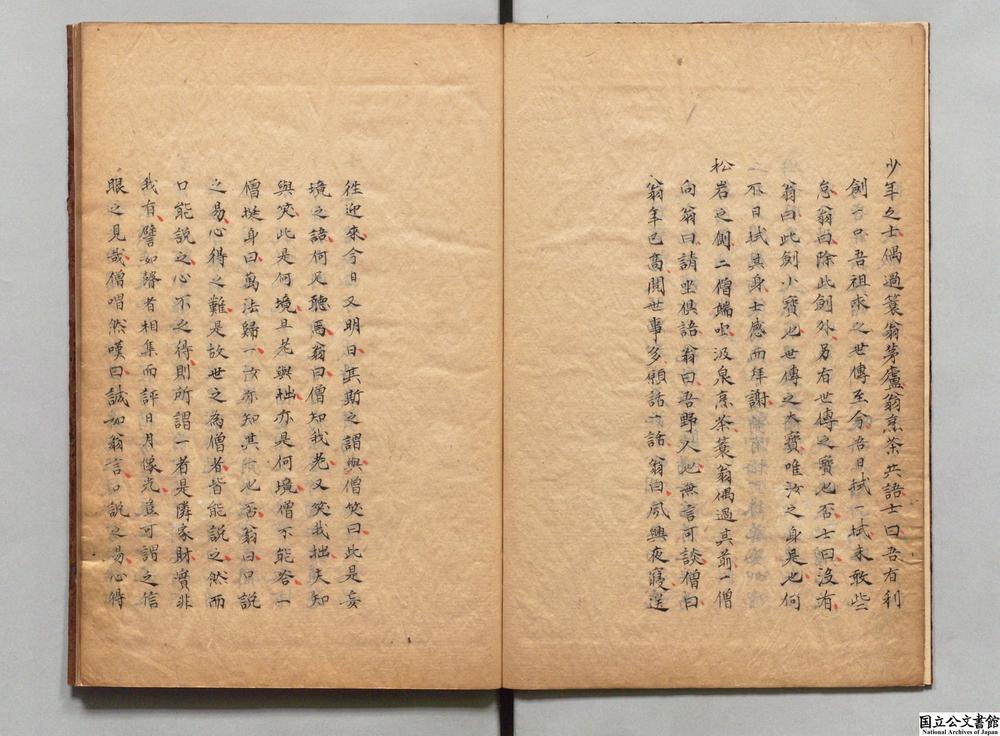 少年之士偶過蓑翁茅廬翁烹茶共語士曰吾有利
劍予吾祖求之世傳至今吾日拭一拭未敢些
怠翁曰除此劍外另有世傳之寶也否士曰沒有
翁曰此劍小寶也世傳之大寶唯汝之身是也何
不日拭其身士感而拜謝
松岩之側二僧端坐汲泉烹茶蓑翁偶過其前一僧
向翁曰請坐俱語翁曰吾野人也無言可談僧曰
翁年已高閱世事多願話一話翁曰夙興夜寢送
往迎來今日又明日其斯之謂與僧笑曰此是妄
境之語何足聽焉翁曰僧知我老又笑我拙夫知
與笑此是何境且老與拙亦是何境僧不能答一
僧挺身曰萬法歸一汝亦知其所也否翁曰口說
之易心得之難是故世之為僧者皆能說之然而
口能說之心不之得則所謂一者是隣家財寶非
我有譬如瞽者相集而評日月像光豈可謂之信
眼之見哉僧唱然嘆曰誠如翁言口說之易心得
国立公文書館
National Archives of Japan